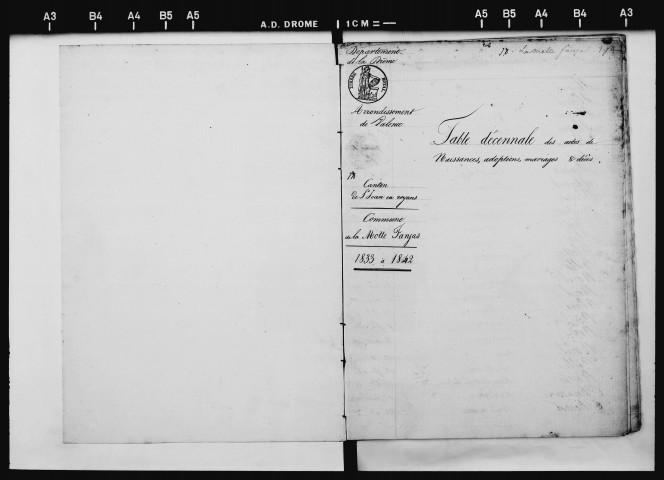 A3 B4 A4 B5 A5 A.D. DROME 1CM A5 B5 A4 B4 A3
Département
de la Drôme
Arrondissement
de Valence
Canton
de St Jean en royans
Commune
de la Motte Fanjas
1833 à 1842
Table décennale des actes de
Naissances, adoptions, mariages & décès.